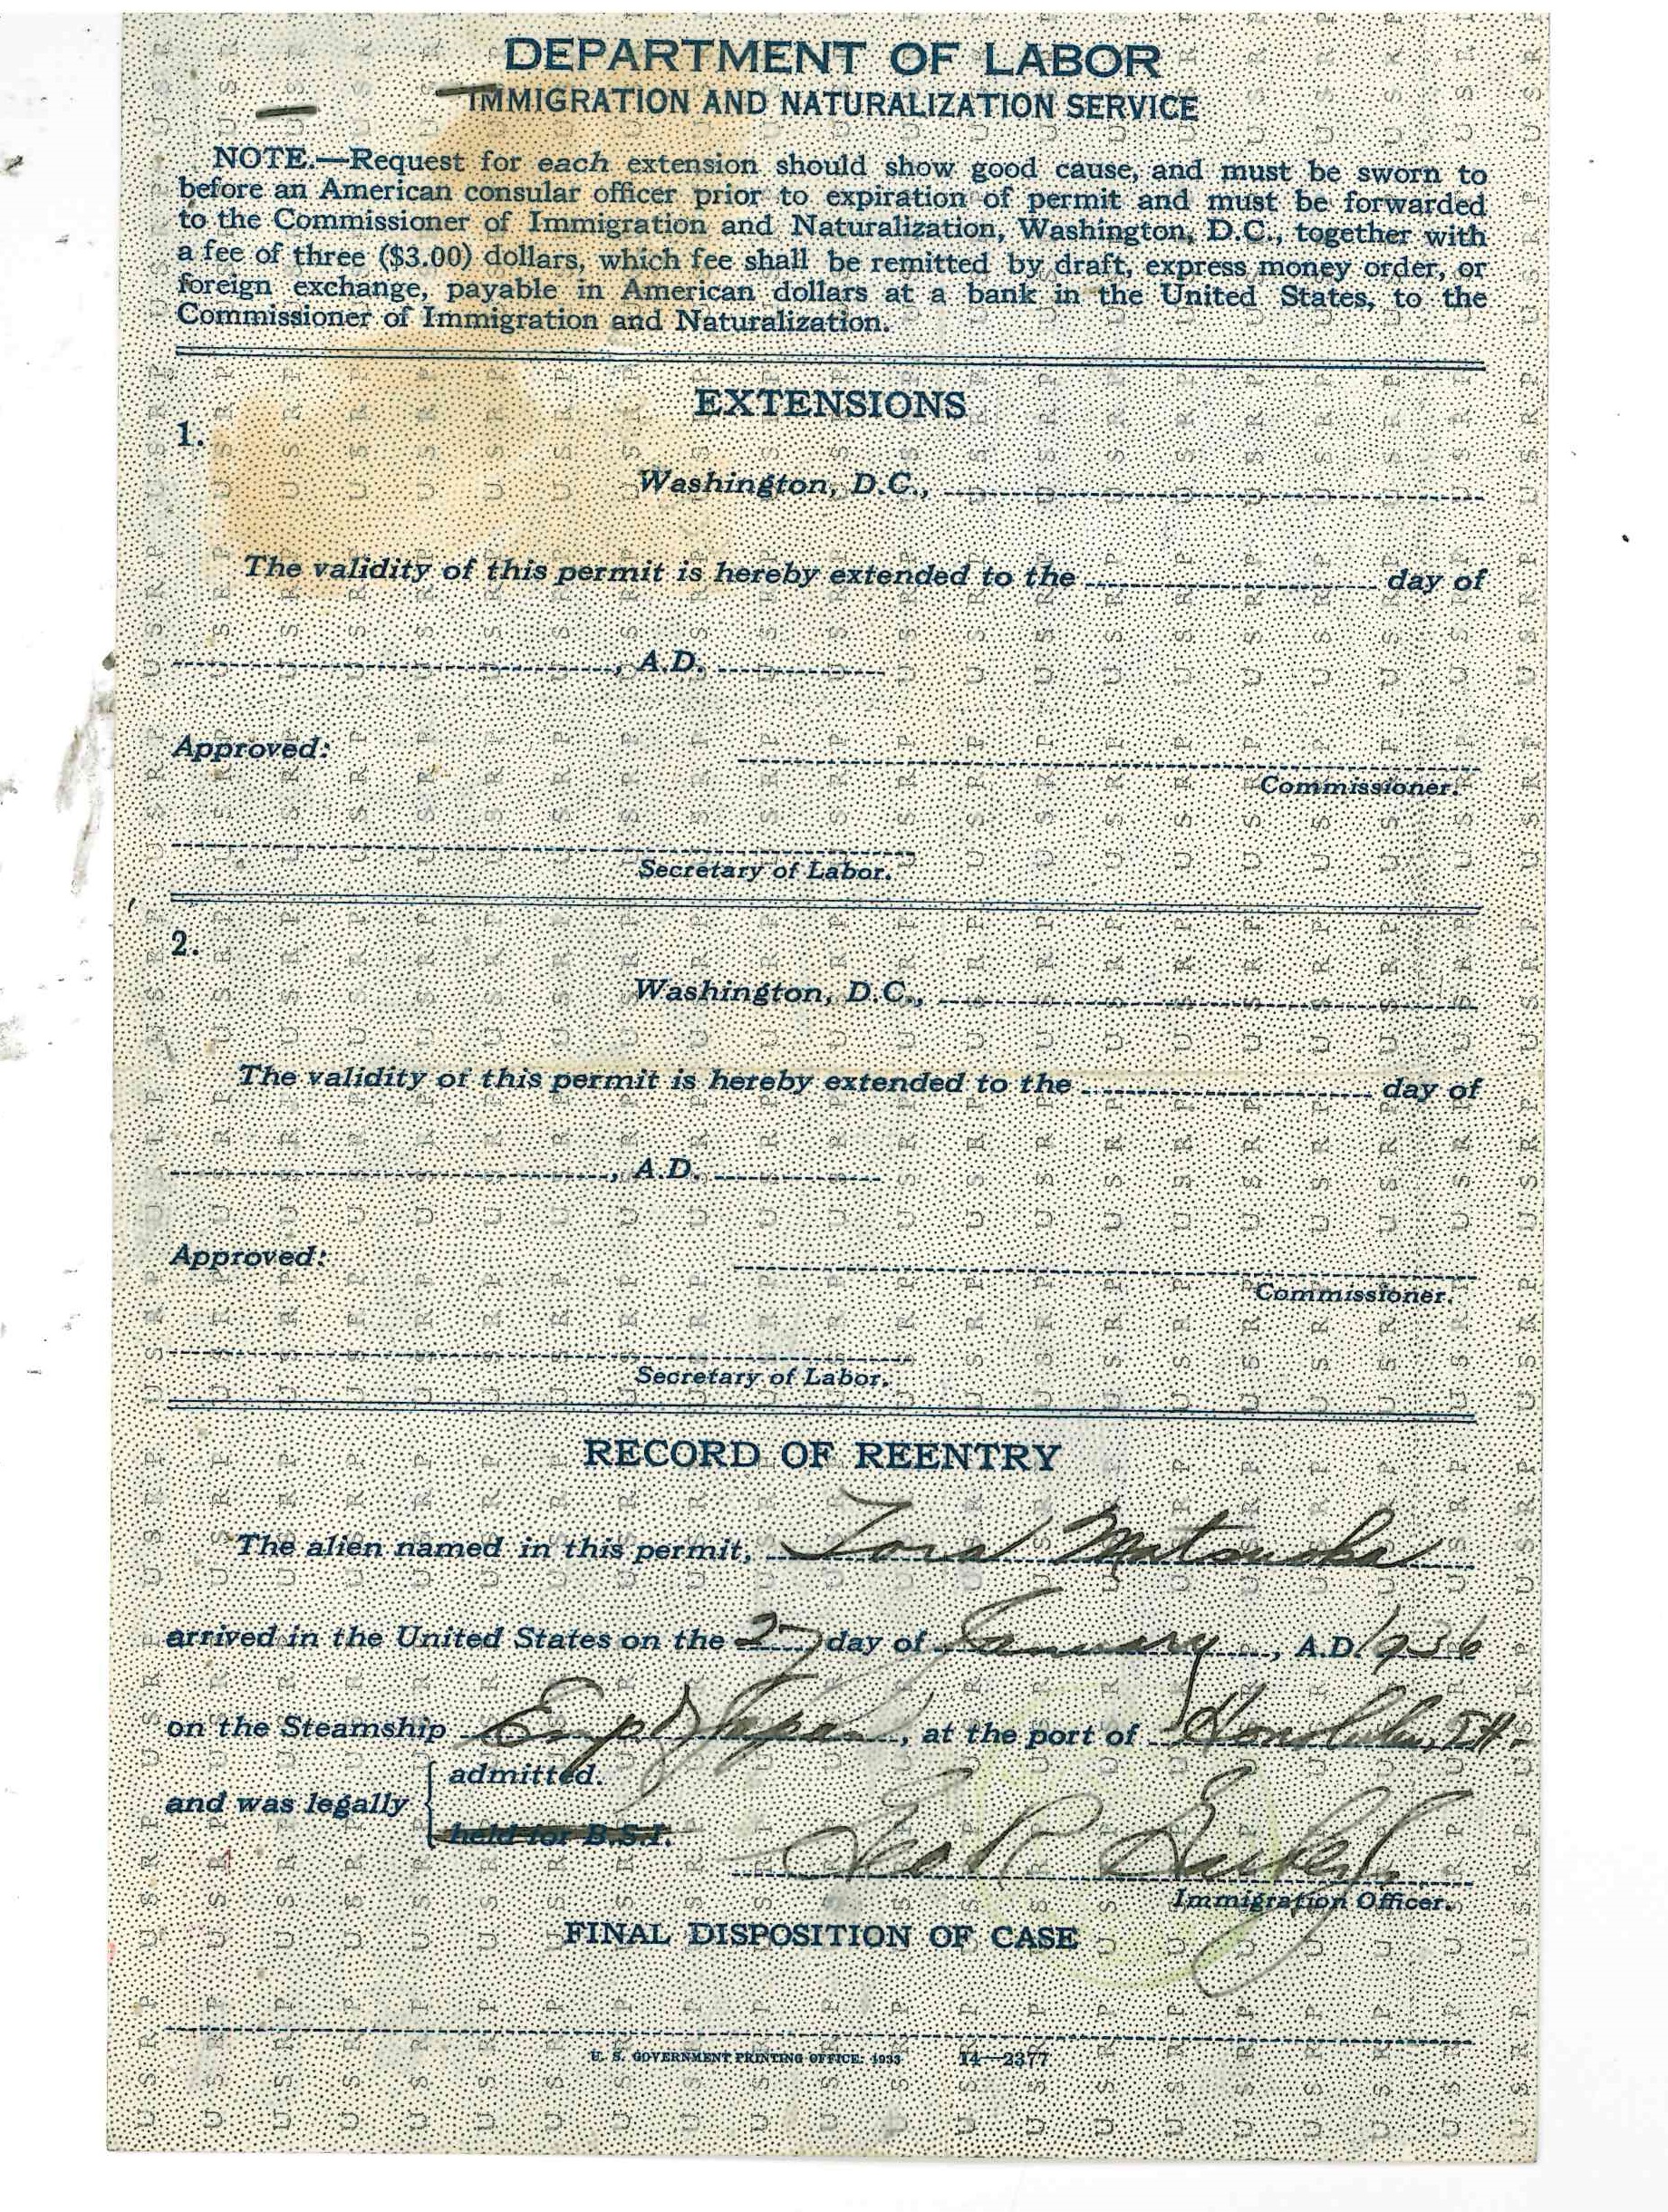 DEPARTMENT OF LABOR
IMMIGRATION AND NATURALIZATION SERVICE
NOTE.—Request for each extension should show good cause, and must be sworn to
before an American consular officer prior to expiration of permit and must be forwarded
to the Commissioner of Immigration and Naturalization, Washington, D.C., together with
a fee of three ($3.00) dollars, which fee shall be remitted by draft, express money order, or
foreign exchange, payable in American dollars at a bank in the United States, to the
Commissioner of Immigration and Naturalization.
EXTENSIONS
1.
Washington, D.C.,
The validity of this permit is hereby extended to the day of
, A.D.
Approved:
Commissioner.
Secretary of Labor.
2.
Washington, D.C.,
The validity of this permit is hereby extended to the day of
, A.D.
Approved:
Commissioner.
Secretary of Labor.
RECORD OF REENTRY
The alien named in this permit, Tora Matsuoka
arrived in the United States on the 27 day of January, A.D. 1936
on the Steamship Emp of Japan, at the port of Honolulu, T.H.
and was legally
admitted.
held for B.S.I.
Geo R
Immigration Officer.
FINAL DISPOSITION OF CASE
U. S. GOVERNMENT PRINTING OFFICE: 1933 14—2377